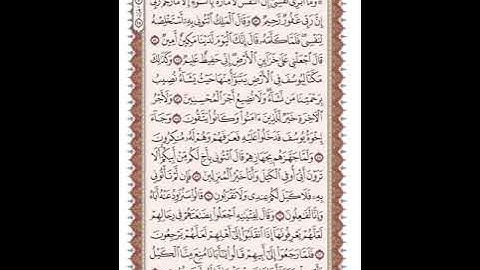 وَمَا أُبَرِّئُ نَفْسِي إِنَّ النَّفْسَ لَأَمَّارَةٌ بِالسُّوءِ إِلَّا مَا رَحِمَ رَبِّي
إِنَّ رَبِّي غَفُورٌ رَّحِيمٌ ۝ وَقَالَ الْمَلِكُ ائْتُونِي بِهِ أَسْتَخْلِصْهُ
لِنَفْسِي فَلَمَّا كَلَّمَهُ قَالَ إِنَّكَ الْيَوْمَ لَدَيْنَا مَكِينٌ أَمِينٌ ۝
قَالَ اجْعَلْنِي عَلَىٰ خَزَائِنِ الْأَرْضِ إِنِّي حَفِيظٌ عَلِيمٌ ۝ وَكَذَٰلِكَ
مَكَّنَّا لِيُوسُفَ فِي الْأَرْضِ يَتَبَوَّأُ مِنْهَا حَيْثُ يَشَاءُ نُصِيبُ
بِرَحْمَتِنَا مَن نَّشَاءُ وَلَا نُضِيعُ أَجْرَ الْمُحْسِنِينَ ۝ وَلَأَجْرُ
الْآخِرَةِ خَيْرٌ لِّلَّذِينَ آمَنُوا وَكَانُوا يَتَّقُونَ ۝ وَجَاءَ
إِخْوَةُ يُوسُفَ فَدَخَلُوا عَلَيْهِ فَعَرَفَهُمْ وَهُمْ لَهُ مُنكِرُونَ
۝ وَلَمَّا جَهَّزَهُم بِجَهَازِهِمْ قَالَ ائْتُونِي بِأَخٍ لَّكُم مِّنْ أَبِيكُمْ أَلَا
تَرَوْنَ أَنِّي أُوفِي الْكَيْلَ وَأَنَا خَيْرُ الْمُنزِلِينَ ۝ فَإِن لَّمْ تَأْتُونِي
بِهِ فَلَا كَيْلَ لَكُمْ عِندِي وَلَا تَقْرَبُونِ ۝ قَالُوا سَنُرَاوِدُ عَنْهُ أَبَاهُ
وَإِنَّا لَفَاعِلُونَ ۝ وَقَالَ لِفِتْيَانِهِ اجْعَلُوا بِضَاعَتَهُمْ فِي رِحَالِهِمْ
لَعَلَّهُمْ يَعْرِفُونَهَا إِذَا انقَلَبُوا إِلَىٰ أَهْلِهِمْ لَعَلَّهُمْ يَرْجِعُونَ
۝ فَلَمَّا رَجَعُوا إِلَىٰ أَبِيهِمْ قَالُوا يَا أَبَانَا مُنِعَ مِنَّا الْكَيْلُ